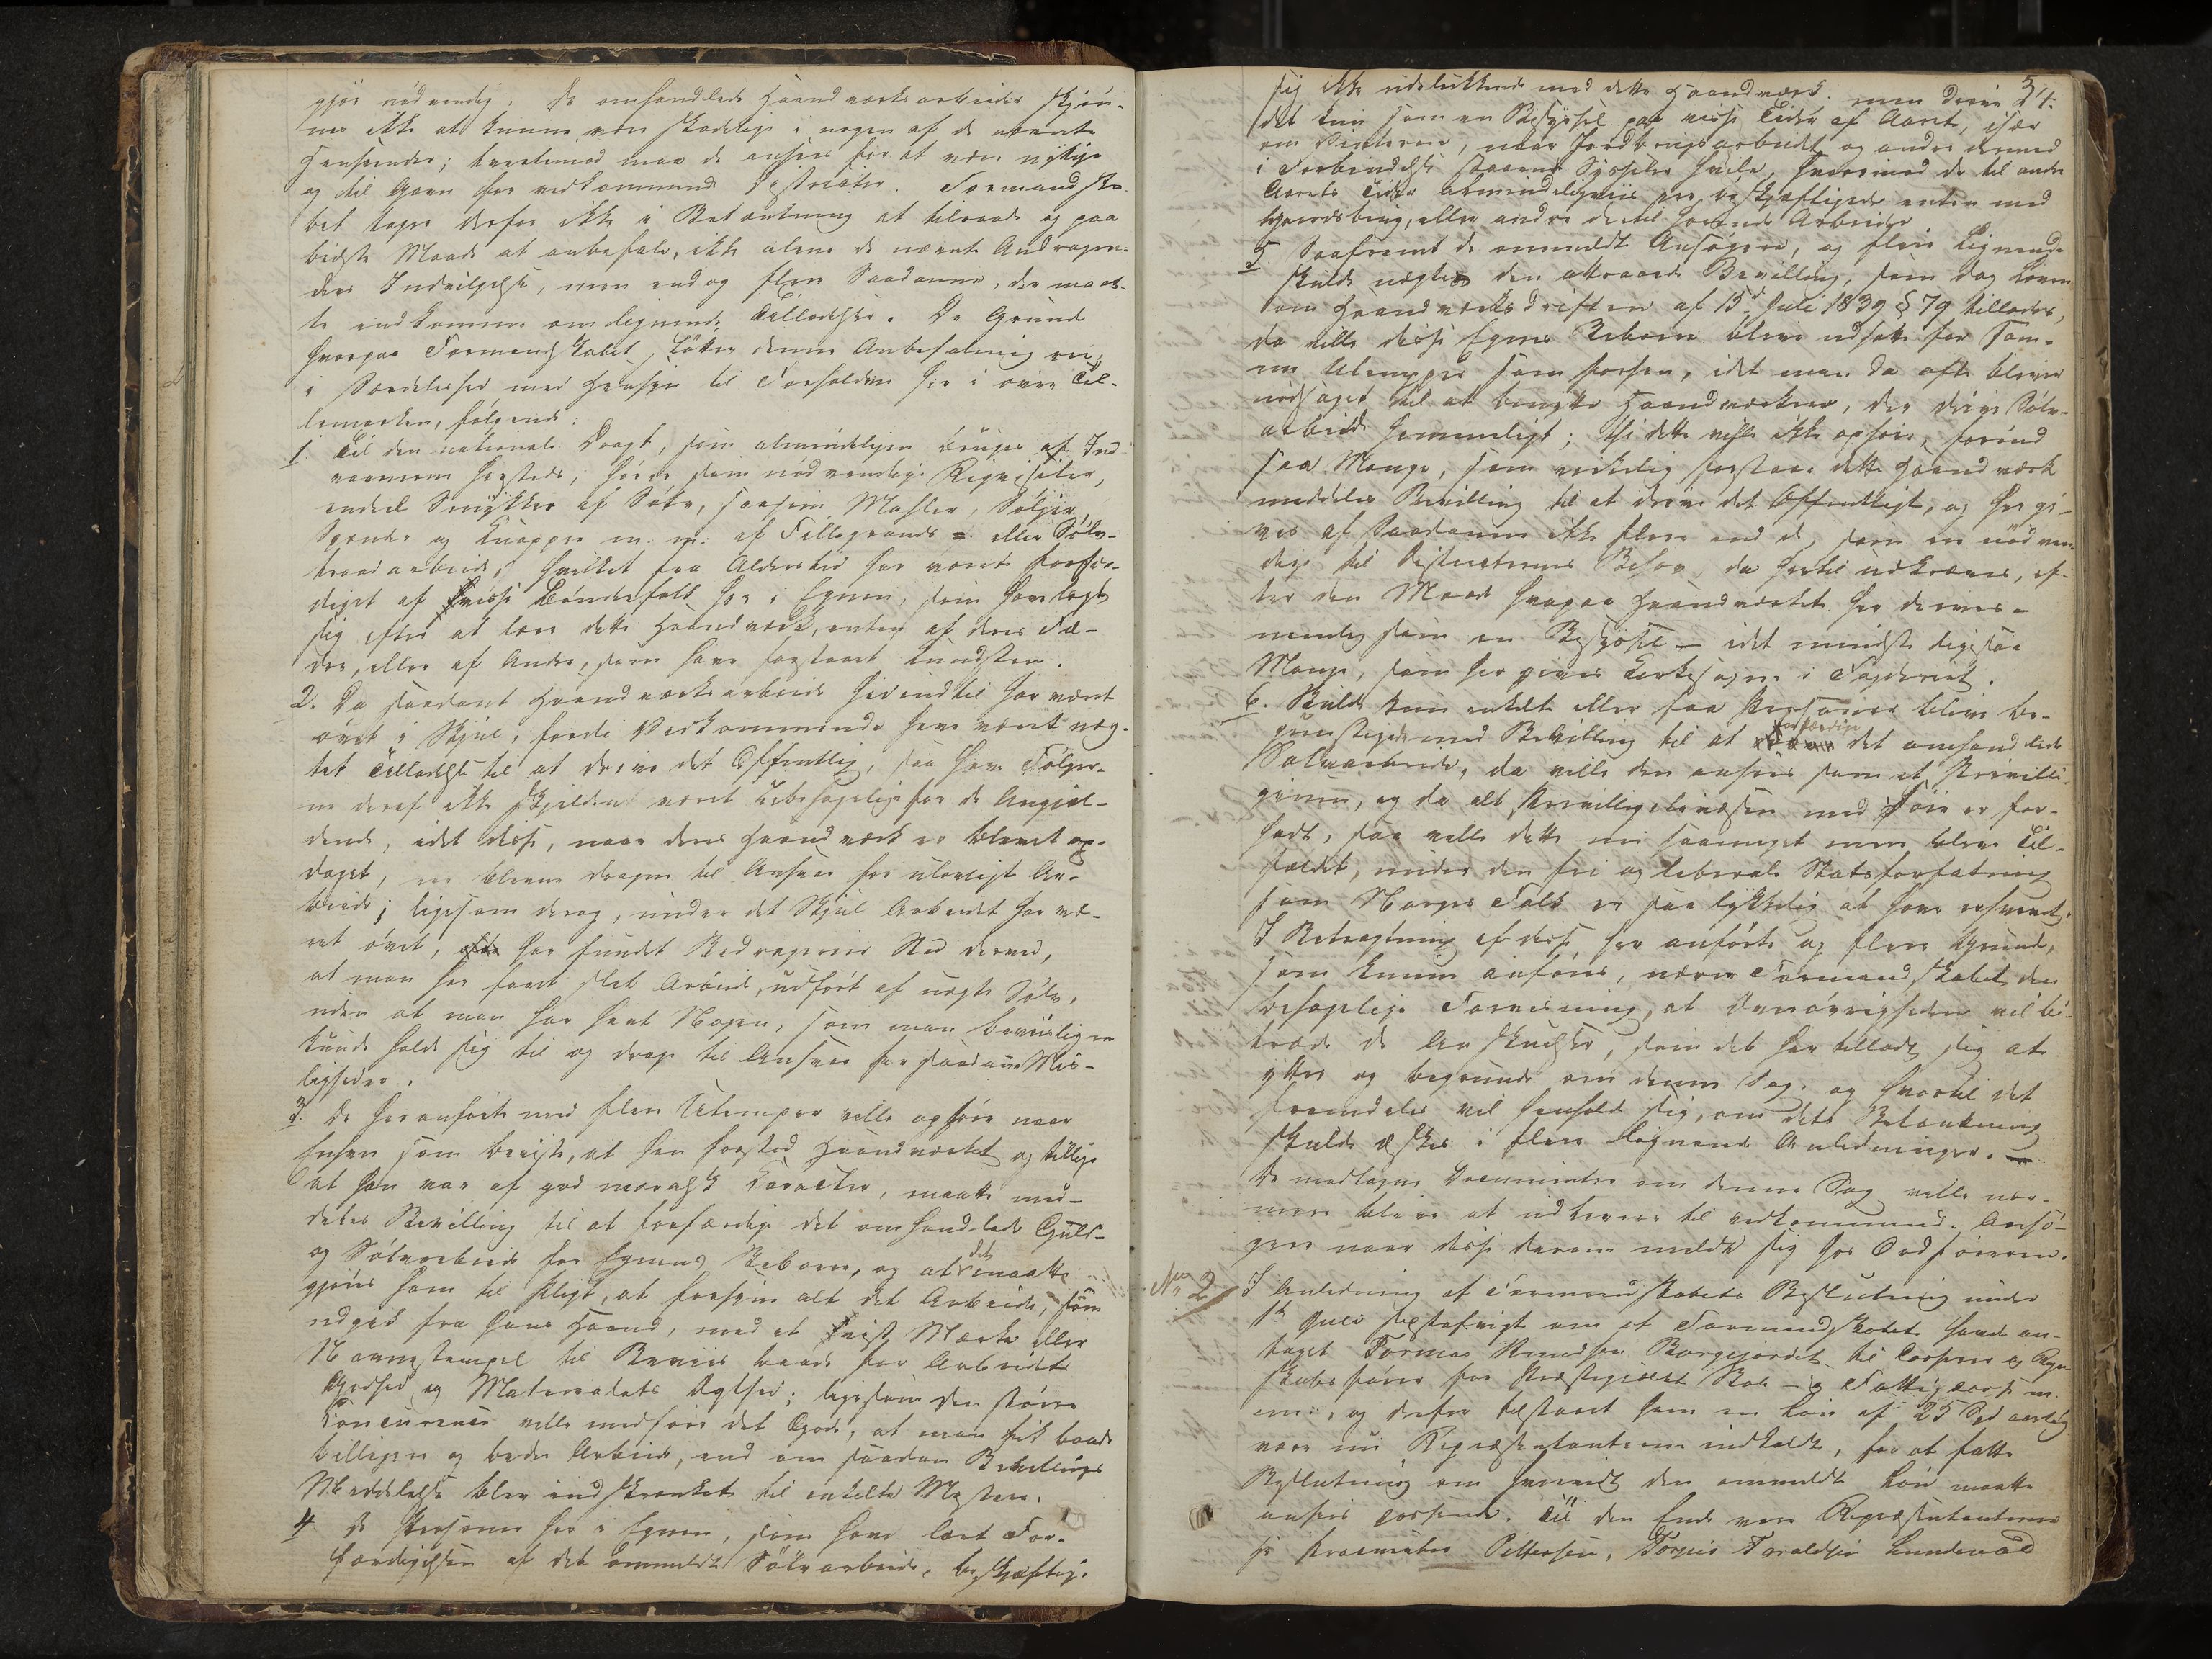 gjør nødvendig. De omhandlede Haandværksarbeider skjøn-
nes ikke at kunne være skadelige i nogen af de nævnte
Henseender; tvertimod maa de ansees for at være nyttige
og til Gavn for vedkommende Distrikter. Formandska-
bet tager derfor ikke i Betænkning at tilraade og paa
bedste Maade at anbefale, ikke alene de nævnte Andragen-
ders Indvilgelse, men endog flere Saadanne, der maat-
te indkomme om lignende Tilladelser. De Grunde
hvorpaa Formandskabet støtter denne Anbefaling ere,
i Særdeleshed med Hensyn til Forholdene her i øvre Tel-
lemarken, følgende:
1 Til den nationale Dragt, som almindeligen bruges af Ind-
vaanerne hersteds, hører som nødvendige Reqvisiter,
endeel Smykker af Sølv, saasom Masler, Søljer,
Spænder og Knapper m. m. af Fillegrands = eller Sølv-
traadarbeide, hvilket fra Alderstid har været forfær-
diget af visse Bøndefolk her i Egnen, som have lagt
sig efter at lære dette Haandværk, enten af deres Fæ-
dre, eller af Andre, som have forstaaet Kunsten.
2. Da saadant Haandværksarbeide hidindtil har været
øvet i Skjul, fordi Vedkommende have været næg-
tet Tilladelse til at drive det Offentlig, saa have Følger-
ne deraf ikke sjeldent været ubehagelige for de Angjel-
dende, idet disse, naar deres Haandværk er blevet op-
daget, ere blevne dragne til Ansvar for ulovligt Ar-
beide; ligesom derog, under det Skjul Arbeidet har væ-
ret øvet, har fundet Bedragerier Sted derved,
at man har faaet slet Arbeide, udført af uægte Sølv,
uden at man har havt Nogen, som man beviislig en
kunde holde sig til og drage til Ansvar for saadanne Mis-
ligheder.
3. De heranførte med flere Ulemper ville ophøre naar
Enhver som beviste, at han forstod Haandværket og tillige
at han var af god moralsk Caracter, maatte med-
deles Bevilling til at forfærdige det omhandlede Guld-
og Sølvarbeide for Egnens Beboere, og at det maatte
gjøres ham til Pligt, at forsyne alt det Arbeide, som
udgik fra hans Haand, med et vist Mærke eller
Navnestempel til Beviis baade for Arbeidets
Godhed og Materialets Ægthed; ligesom den større
Concurence ville medføre det Gode, at man fik baade
billigere og bedre Arbeide, end om saadan Bevillings
Meddelelse blev indskrænket til enkelte Mestere.
4 De Personer her i Egnen, som have lært For-
færdigelsen af det ommeldte Sølvarbeide, beskjæftige
sig ikke udelukkende med dette Haandværk; men drive 24.
det kun som en Bisyssel paa visse Tider af Aaret, især
om Vinteren, naar Jordbrugsarbeidet og andre dermed
i Forbindelse staaende Sysseler hvile, hvorimod de til andre
Aarets Tider almindeligviis ere beskjæftigede enten med
Gaardsbrug, eller andre dertil hørende Arbeider
5 Saafremt de ommeldte Ansøgere, og flere Lignende
skulde nægtes den attraaede Bevilling, som dog Loven
om Haandværksdriften af 15d Juli 1839 § 79 tillader,
da ville disse Egnes Beboere blive udsatte for Sam-
me Ulemper som forhen, idet man da ofte bliver
nødsaget til at benytte Haandværkere, der drive Sølv-
arbeide hemmeligt; thi dette vilde ikke ophøre, førend
saa Mange, som virkelig forstaae dette Haandværk
meddeles Bevilling til at drive det Offentligt, og her gi-
ves af Saadanne ikke flere end de, som ere nødven-
dige til Districternes Behov, da hertil udkræves, ef-
ter den Maade hvorpaa Haandværket her drives =
nemlig som en Bisyssel — idet mindste ligesaa
Mange, som her gives Kirkesogne i Fogderiet.
6. Skulde kun enkelte eller faa Personer blive be-
gunstigede med Bevilling til at forfærdige det omhandlede
Sølvarbeide, da ville den ansees som et Privilli-
gium, og da alt Privilligievæsen med Føie er for-
hadt, saa ville dette nu saameget mere blive Til-
fældet, under den frie og liberale Statsforfatning
som Norges Folk er saa lykkelig at have erhvervet.
I Betragtning af disse her anførte og flere Grunde,
som kunne anføres, nærer Formandskabet den
behagelige Forvisning, at Overøvrigheden vil bi-
træde de Anskuelser, som det har tilladt sig at
yttre og begrunde om denne Sag, og hvortil det
fremdeles vil henholde sig, om dets Betænkning
skulde æskes i flere lignende Anledninger. —
De modtagne Documenter om denne Sag ville nær-
mere blive at udlevere til vedkommende Ansø-
gere naar disse derom melde sig hos Ordføreren.
No 2 I Anledning af Formandskabets Beslutning under
1te Juli sidstafvigt om at Formandskabet havde an-
taget Tormod Knudsen Borgejordet til Casserer og Regn-
skabsfører for Præstegjeldets Skole — og Fattigcasse m.
m., og derfor tilstaaet ham en Løn af 25 Spd aarlig
vare nu Repræsentanterne indkaldte, for at fatte
Beslutning om hvorvidt den ommeldte Løn maatte
ansees passende. Til den Ende vare Repræsentanterne
Hr Procurator Pettersen, Torjus Taraldsen Lundevad